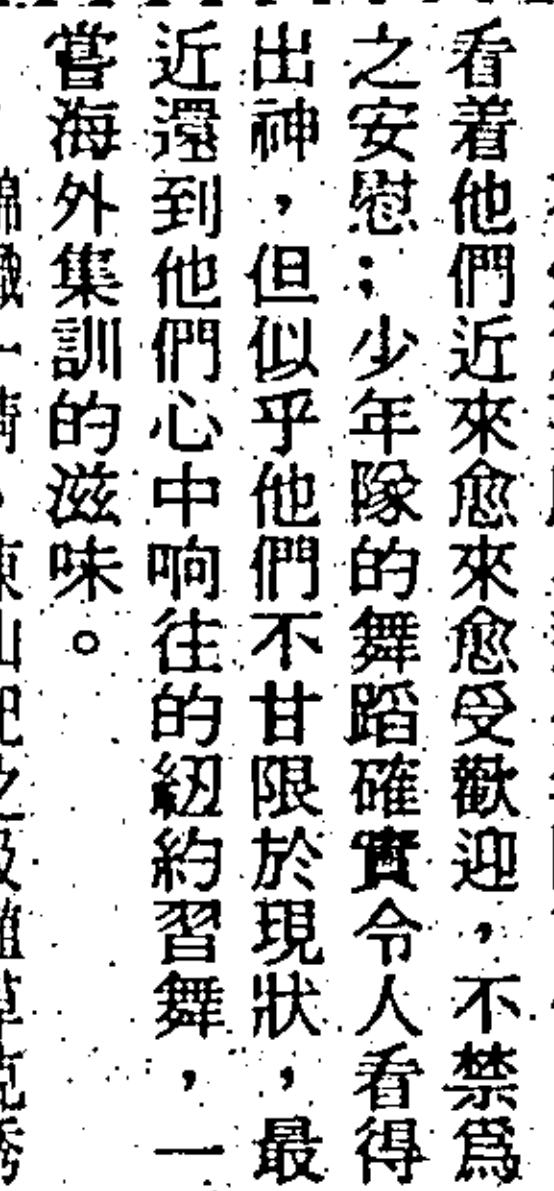 看着他們近來愈來愈受歡迎，不禁爲
之安慰；少年隊的舞蹈確實令人看得
出神，但似乎他們不甘限於現狀，最
近還到他們心中响往的紐約習舞，一
嘗海外集訓的滋味。